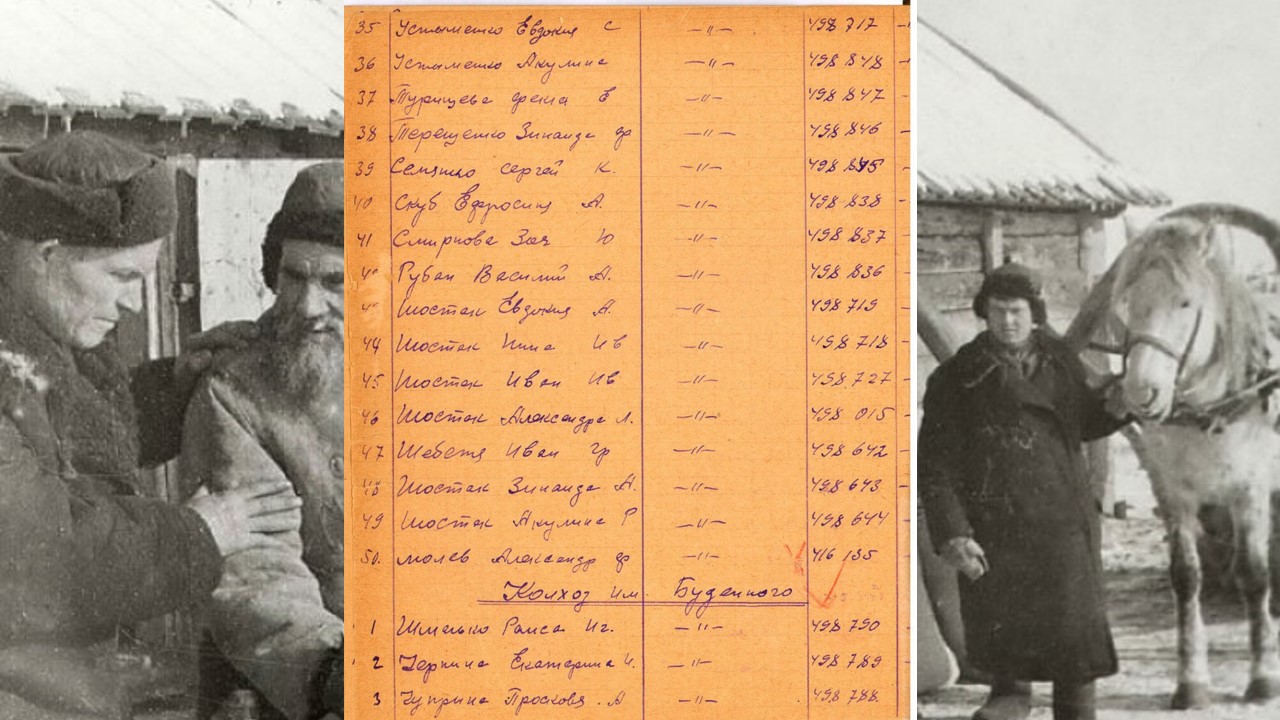 35 Устименко Евдокия С —"— 498 717
36 Устименко Акулина —"— 498 848
37 Турищева Фекла Е —"— 498 847
38 Терещенко Зинаида Ф —"— 498 846
39 Семашко Сергей К. —"— 498 845
40 Скуб Ефросиния А. —"— 498 838
41 Смирнова Зоя Ю —"— 498 837
Рубан Василий А. —"— 498 836
Шостак Евдокия А. —"— 498 719
44 Шостак Нина Ив —"— 498 718
45 Шостак Иван Ив —"— 498 727
46 Шостак Александра Л. —"— 498 015
47 Шебетя Иван Гр —"— 498 642
48 Шостак Зинаида А. —"— 498 643
49 Шостак Акулина Р —"— 498 644
50. Молев Александр Ф —"— 416 135
Колхоз им. Буденного
1 Шмелько Раиса Иг. —"— 498 790
2 Чернина Екатерина И. —"— 498 789
3 Чуприна Просковя. А —"— 498 788.